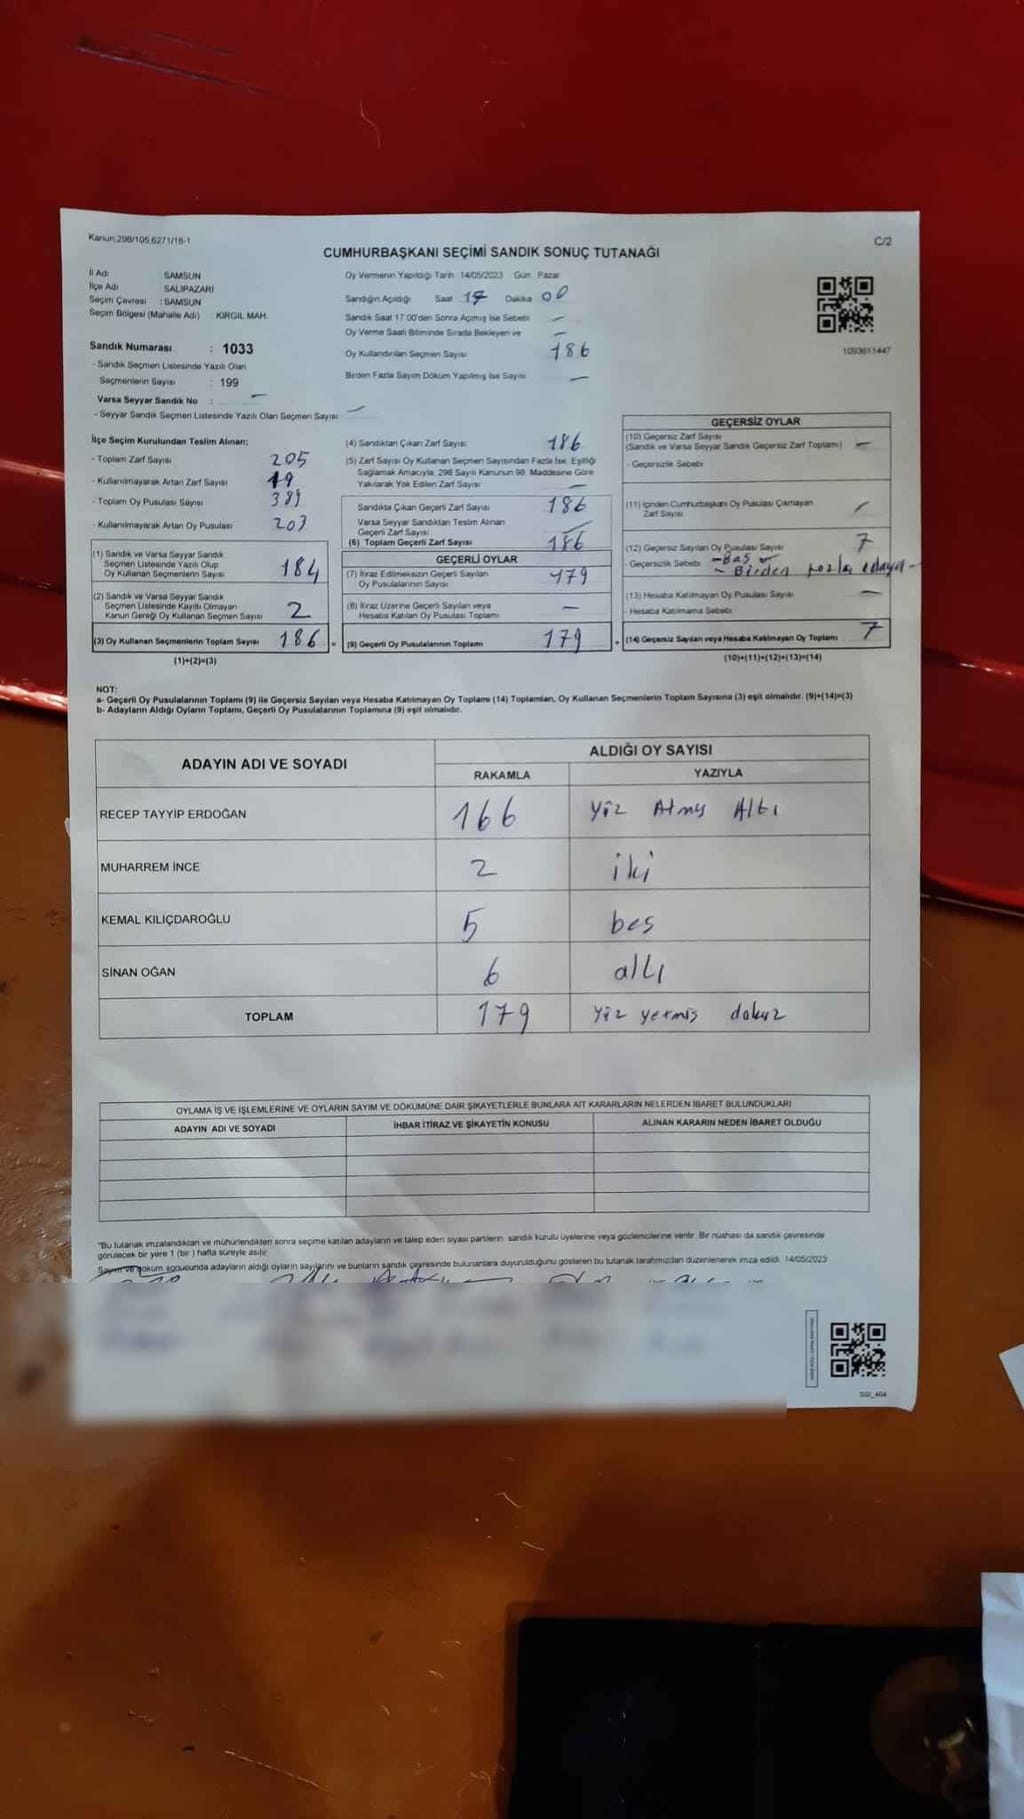 Kanun.298/105,6271/16-1
C/2
CUMHURBAŞKANI SEÇİMİ SANDIK SONUÇ TUTANAĞI
İl Adı SAMSUN
İlçe Adı SALIPAZARI
Seçim Çevresi : SAMSUN
Seçim Bölgesi (Mahalle Adı) : KIRGIL MAH.
Oy Vermenin Yapıldığı Tarih 14/05/2023 Gün Pazar
Sandığın Açıldığı Saat 17 Dakika 00
Sandık Saat 17:00'den Sonra Açılmış İse Sebebi —
Oy Verme Saati Bitiminde Sırada Bekleyen ve —
Oy Kullandırılan Seçmen Sayısı 186
Birden Fazla Sayım Döküm Yapılmış İse Sayısı —
1093611447
Sandık Numarası : 1033
- Sandık Seçmen Listesinde Yazılı Olan
Seçmenlerin Sayısı : 199
Varsa Seyyar Sandık No : —
- Seyyar Sandık Seçmen Listesinde Yazılı Olan Seçmen Sayısı —
İlçe Seçim Kurulundan Teslim Alınan;
- Toplam Zarf Sayısı 205
- Kullanılmayarak Artan Zarf Sayısı 19
- Toplam Oy Pusulası Sayısı 389
- Kullanılmayarak Artan Oy Pusulası 203
(1) Sandık ve Varsa Seyyar Sandık
Seçmen Listesinde Yazılı Olup
Oy Kullanan Seçmenlerin Sayısı 184
(2) Sandık ve Varsa Seyyar Sandık
Seçmen Listesinde Kayıtlı Olmayan
Kanun Gereği Oy Kullanan Seçmen Sayısı 2
(3) Oy Kullanan Seçmenlerin Toplam Sayısı 186 =
(1)+(2)=(3)
(4) Sandıktan Çıkan Zarf Sayısı 186
(5) Zarf Sayısı Oy Kullanan Seçmen Sayısından Fazla İse, Eşitliği
Sağlamak Amacıyla, 298 Sayılı Kanunun 98. Maddesine Göre
Yakılarak Yok Edilen Zarf Sayısı —
Sandıkta Çıkan Geçerli Zarf Sayısı 186
Varsa Seyyar Sandıktan Teslim Alınan
Geçerli Zarf Sayısı —
(6) Toplam Geçerli Zarf Sayısı 186
GEÇERLİ OYLAR
(7) İtiraz Edilmeksizin Geçerli Sayılan
Oy Pusulalarının Sayısı 179
(8) İtiraz Üzerine Geçerli Sayılan veya
Hesaba Katılan Oy Pusulası Toplamı —
(9) Geçerli Oy Pusulalarının Toplamı 179 +
GEÇERSİZ OYLAR
(10) Geçersiz Zarf Sayısı
(Sandık ve Varsa Seyyar Sandık Geçersiz Zarf Toplamı) —
- Geçersizlik Sebebi
(11) İçinden Cumhurbaşkanı Oy Pusulası Çıkmayan
Zarf Sayısı —
(12) Geçersiz Sayılan Oy Pusulası Sayısı 7
- Geçersizlik Sebebi - Boş
- Birden fazla adaya -
(13) Hesaba Katılmayan Oy Pusulası Sayısı —
- Hesaba Katılmama Sebebi
(14) Geçersiz Sayılan veya Hesaba Katılmayan Oy Toplamı 7
(10)+(11)+(12)+(13)=(14)
NOT:
a- Geçerli Oy Pusulalarının Toplamı (9) ile Geçersiz Sayılan veya Hesaba Katılmayan Oy Toplamı (14) Toplamları, Oy Kullanan Seçmenlerin Toplam Sayısına (3) eşit olmalıdır. (9)+(14)=(3)
b- Adayların Aldığı Oyların Toplamı, Geçerli Oy Pusulalarının Toplamına (9) eşit olmalıdır.
ADAYIN ADI VE SOYADI
ALDIĞI OY SAYISI
RAKAMLA YAZIYLA
RECEP TAYYİP ERDOĞAN 166 Yüz Atmış Altı
MUHARREM İNCE 2 iki
KEMAL KILIÇDAROĞLU 5 beş
SİNAN OĞAN 6 altı
TOPLAM 179 Yüz yetmiş dokuz
OYLAMA İŞ VE İŞLEMLERİNE VE OYLARIN SAYIM VE DÖKÜMÜNE DAİR ŞİKAYETLERLE BUNLARA AİT KARARLARIN NELERDEN İBARET BULUNDUKLARI
ADAYIN ADI VE SOYADI İHBAR İTİRAZ VE ŞİKAYETİN KONUSU ALINAN KARARIN NEDEN İBARET OLDUĞU
"Bu tutanak imzalandıktan ve mühürlendikten sonra seçime katılan adayların ve talep eden siyasi partilerin sandık kurulu üyelerine veya gözlemcilerine verilir. Bir nüshası da sandık çevresinde
görülecek bir yere 1 (bir ) hafta süreyle asılır.
Sayım ve döküm sonucunda adayların aldığı oyların sayılarını ve bunların sandık çevresinde bulunanlara duyurulduğunu gösteren bu tutanak tarafımızdan düzenlenerek imza edildi. 14/05/2023